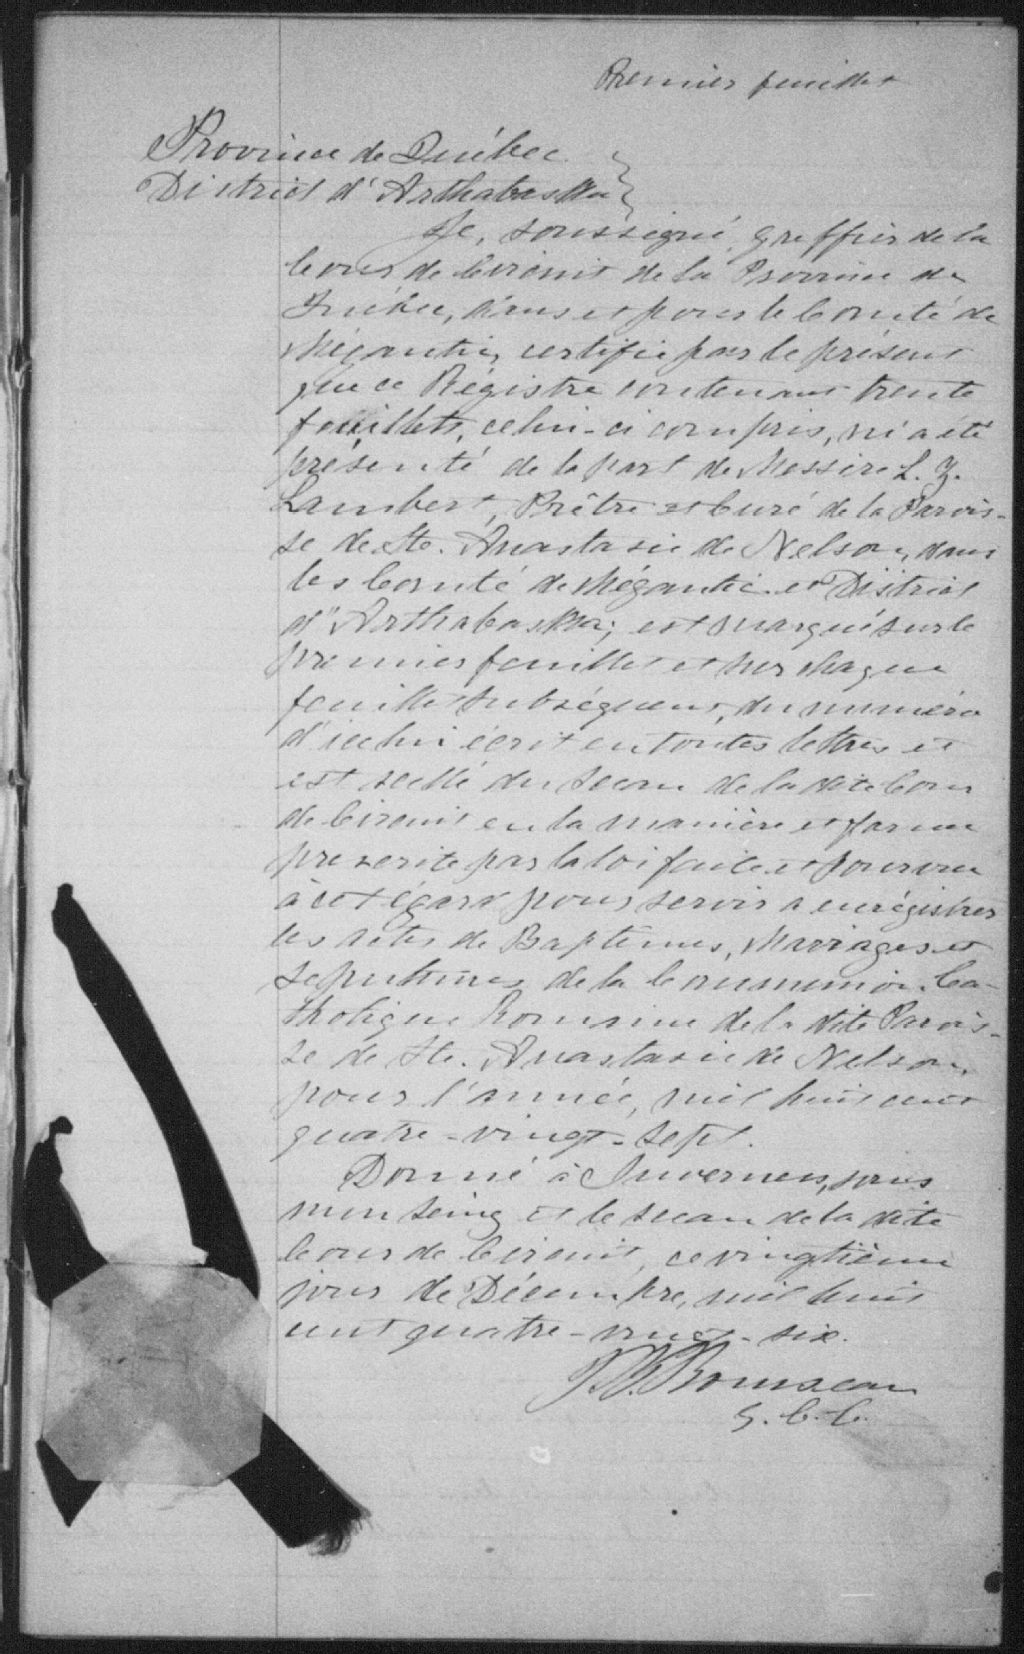 Premier feuillet
Province de Québec
District d'Arthabaska
Je, soussigné, greffier de la
Cour de Circuit de la Province de
Québec, dans et pour le Comté de
Mégantic, certifie par le présent
que ce Régistre contenant trente
feuillets, celui-ci compris, m'a été
présenté de la part de Messire L. Z.
Lambert, Prêtre et Curé de la Parois-
se de Ste. Anastasie de Nelson, dans
les Comté de Mégantic et District
d'Arthabaska; est marqué sur le
premier feuillet et sur chaque
feuillet subséquent, du numéro
d'icelui écrit en toutes lettres et
est scellé du sceau de la dite Cour
de Circuit en la manière et forme
prescrite par la loi faite et pourvue
à cet égard pour servir a enrégistrer
les actes de Baptêmes, Mariages et
sepultures de la Communion Ca-
tholique Romaine de la dite Parois-
se de Ste. Anastasie de Nelson,
pour l'année, mil huit cent
quatre-vingt-sept.
Donné à Inverness, sous
mon seing et le sceau de la dite
Cour de Circuit, ce vingtième
jour de Décembre, mil huit
cent quatre-vingt-six.
Rousseau
G. C. C.